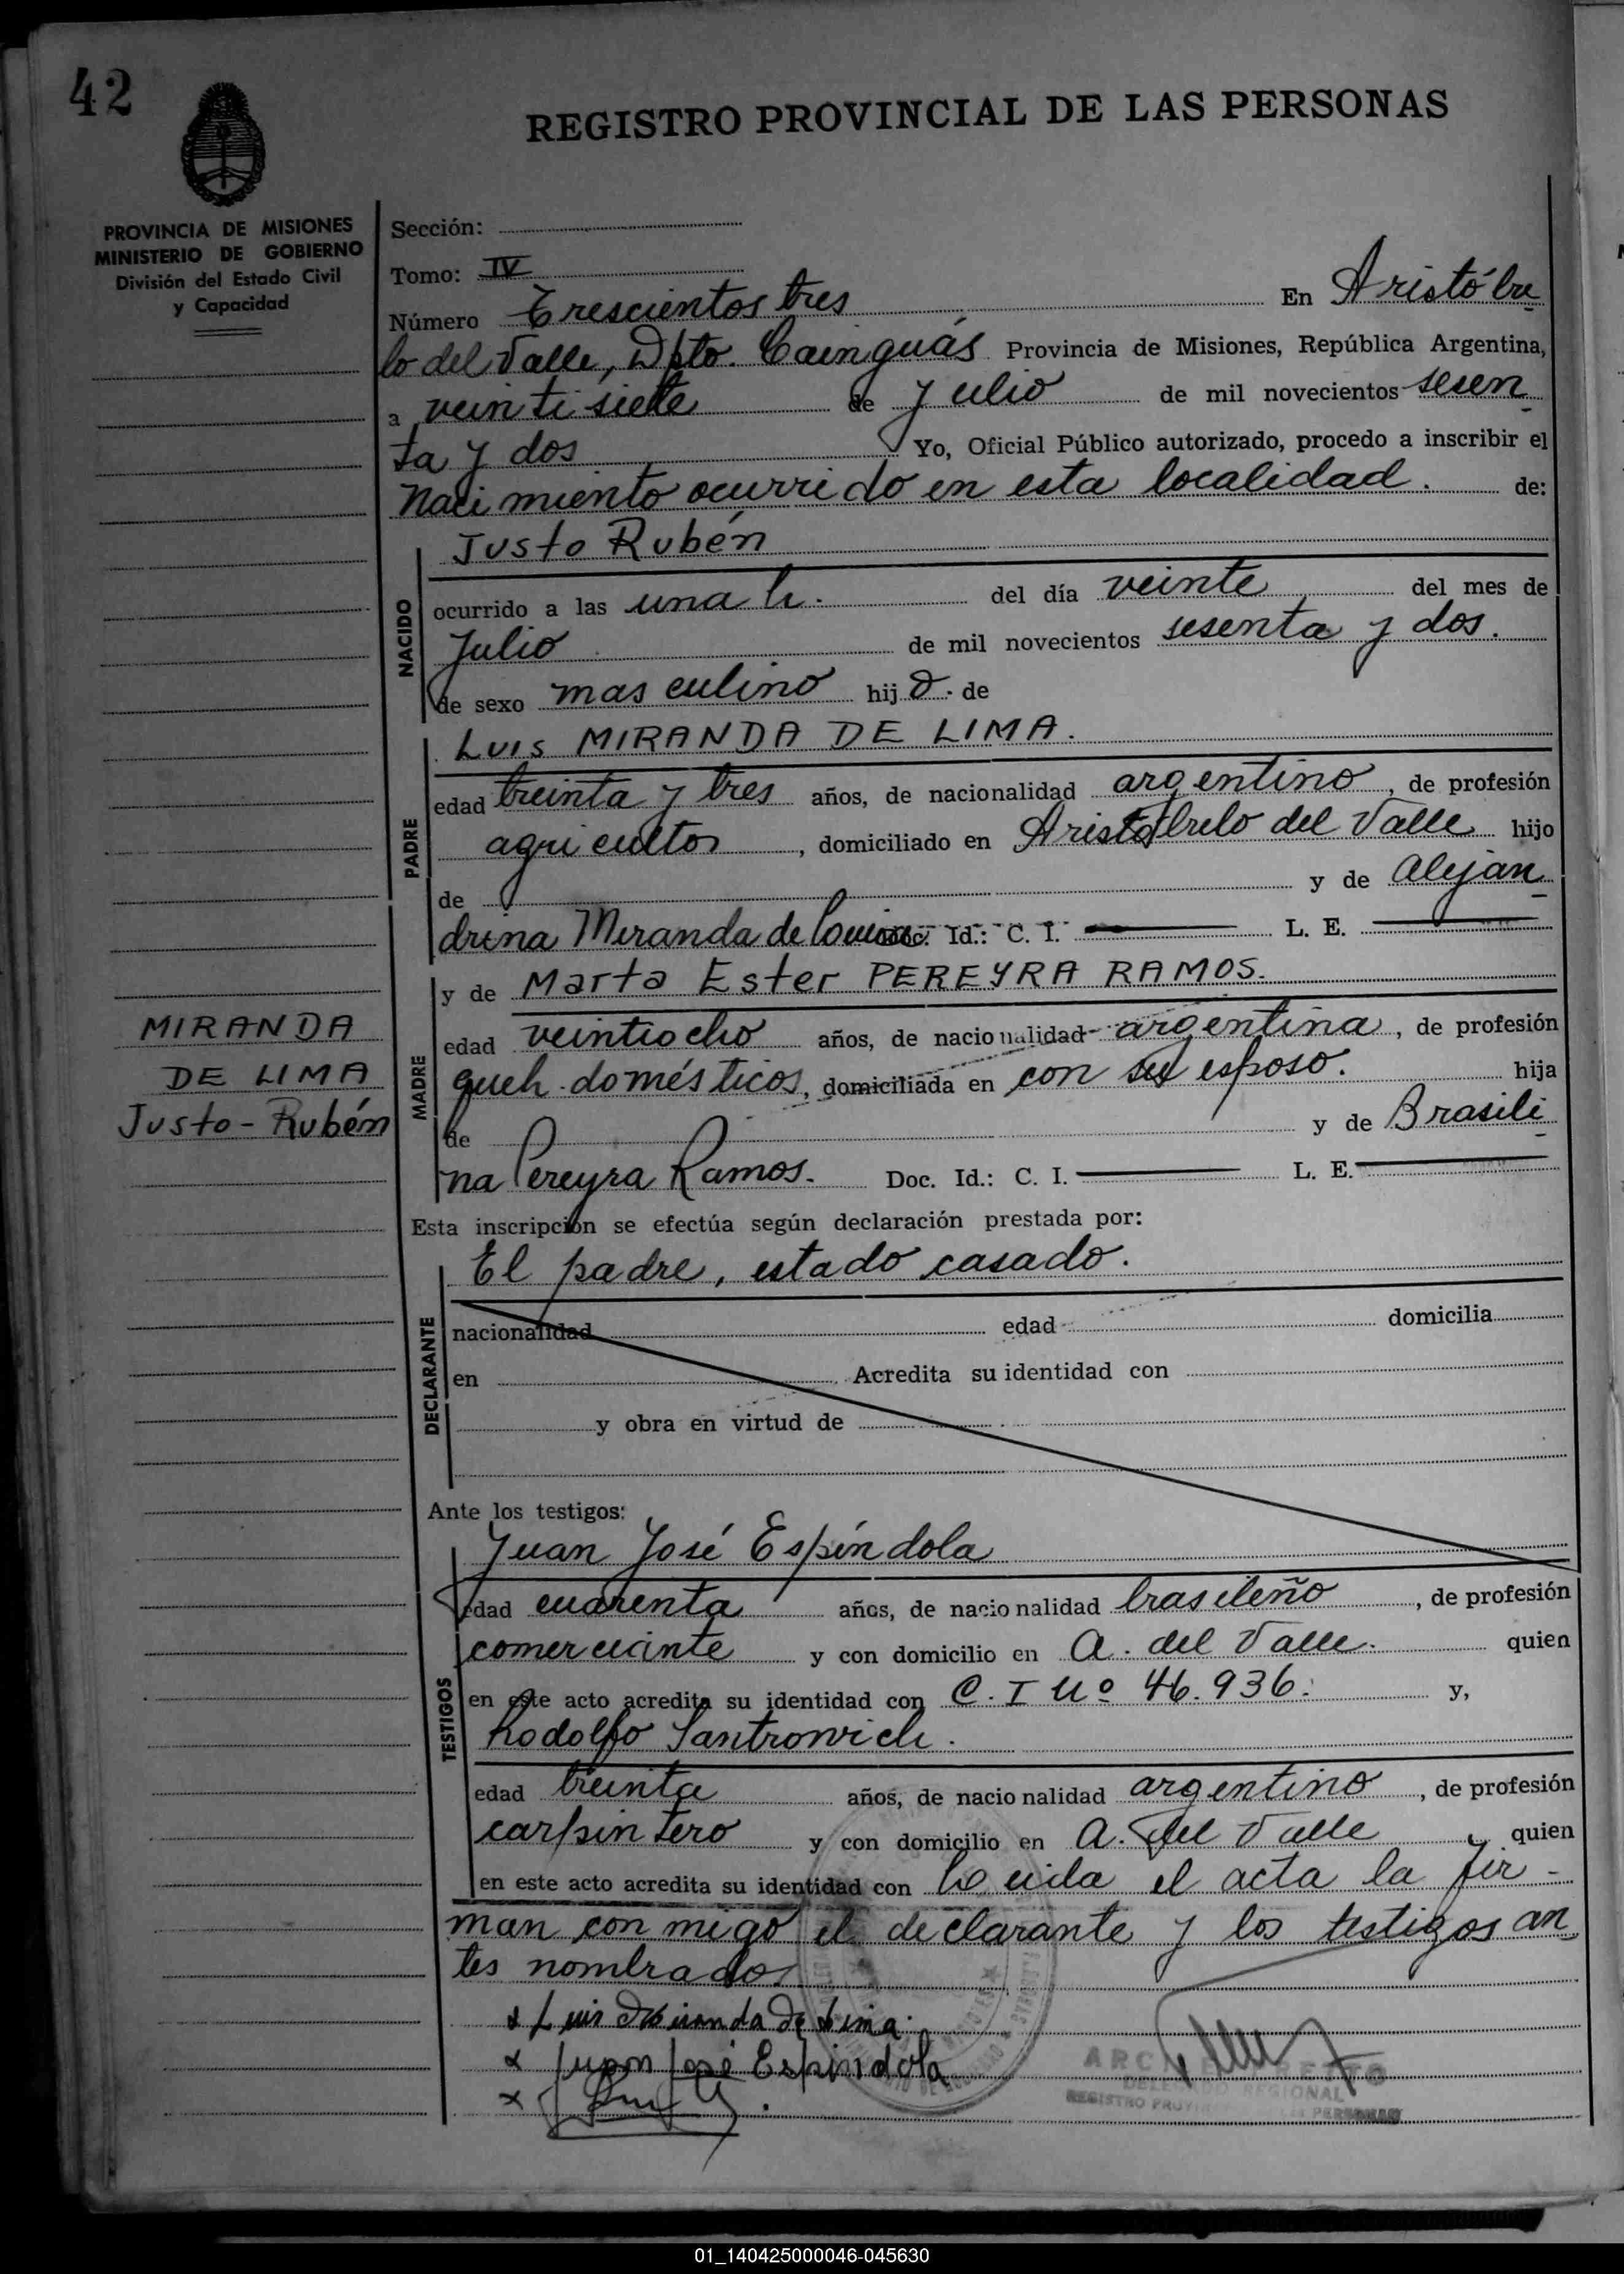 42
REGISTRO PROVINCIAL DE LAS PERSONAS
PROVINCIA DE MISIONES
MINISTERIO DE GOBIERNO
División del Estado Civil
y Capacidad
Sección:
Tomo: IV
Número Trescientos tres En Aristóbu
lo del Valle, Dpto. Cainguás Provincia de Misiones, República Argentina,
a veintisiete de Julio de mil novecientos sesen
ta y dos Yo, Oficial Público autorizado, procedo a inscribir el
Nacimiento ocurrido en esta localidad. de:
NACIDO
Justo Rubén
ocurrido a las una h. del día veinte del mes de
Julio de mil novecientos sesenta y dos.
de sexo masculino hijo. de
PADRE
Luis MIRANDA DE LIMA.
edad treinta y tres años, de nacionalidad argentino, de profesión
agricultor, domiciliado en Aristóbulo del Valle hijo
de y de Alejan
drina Miranda de Doc. Id.: C. I. L. E.
MADRE
y de Marta Ester PEREYRA RAMOS.
edad veintiocho años, de nacionalidad argentina, de profesión
queh. domésticos, domiciliada en con su esposo. hija
de y de Brasili
na Pereyra Ramos. Doc. Id.: C. I. L. E.
MIRANDA
DE LIMA
Justo-Rubén
Esta inscripción se efectúa según declaración prestada por:
DECLARANTE
El padre, estado casado.
nacionalidad edad domicilia
en Acredita su identidad con
y obra en virtud de
Ante los testigos:
TESTIGOS
Juan José Espíndola
edad cuarenta años, de nacionalidad brasileño, de profesión
comerciante y con domicilio en A. del Valle. quien
en este acto acredita su identidad con C. I Nº 46.936. y,
Rodolfo Santrovich.
edad treinta años, de nacionalidad argentino, de profesión
carpintero y con domicilio en A. del Valle quien
en este acto acredita su identidad con Leida el acta la fir-
man conmigo el declarante y los testigos an
tes nombrados
x Luis Miranda De Lima.
x Juan José Espindola
x
DELEGADO REGIONAL
01_140425000046-045630